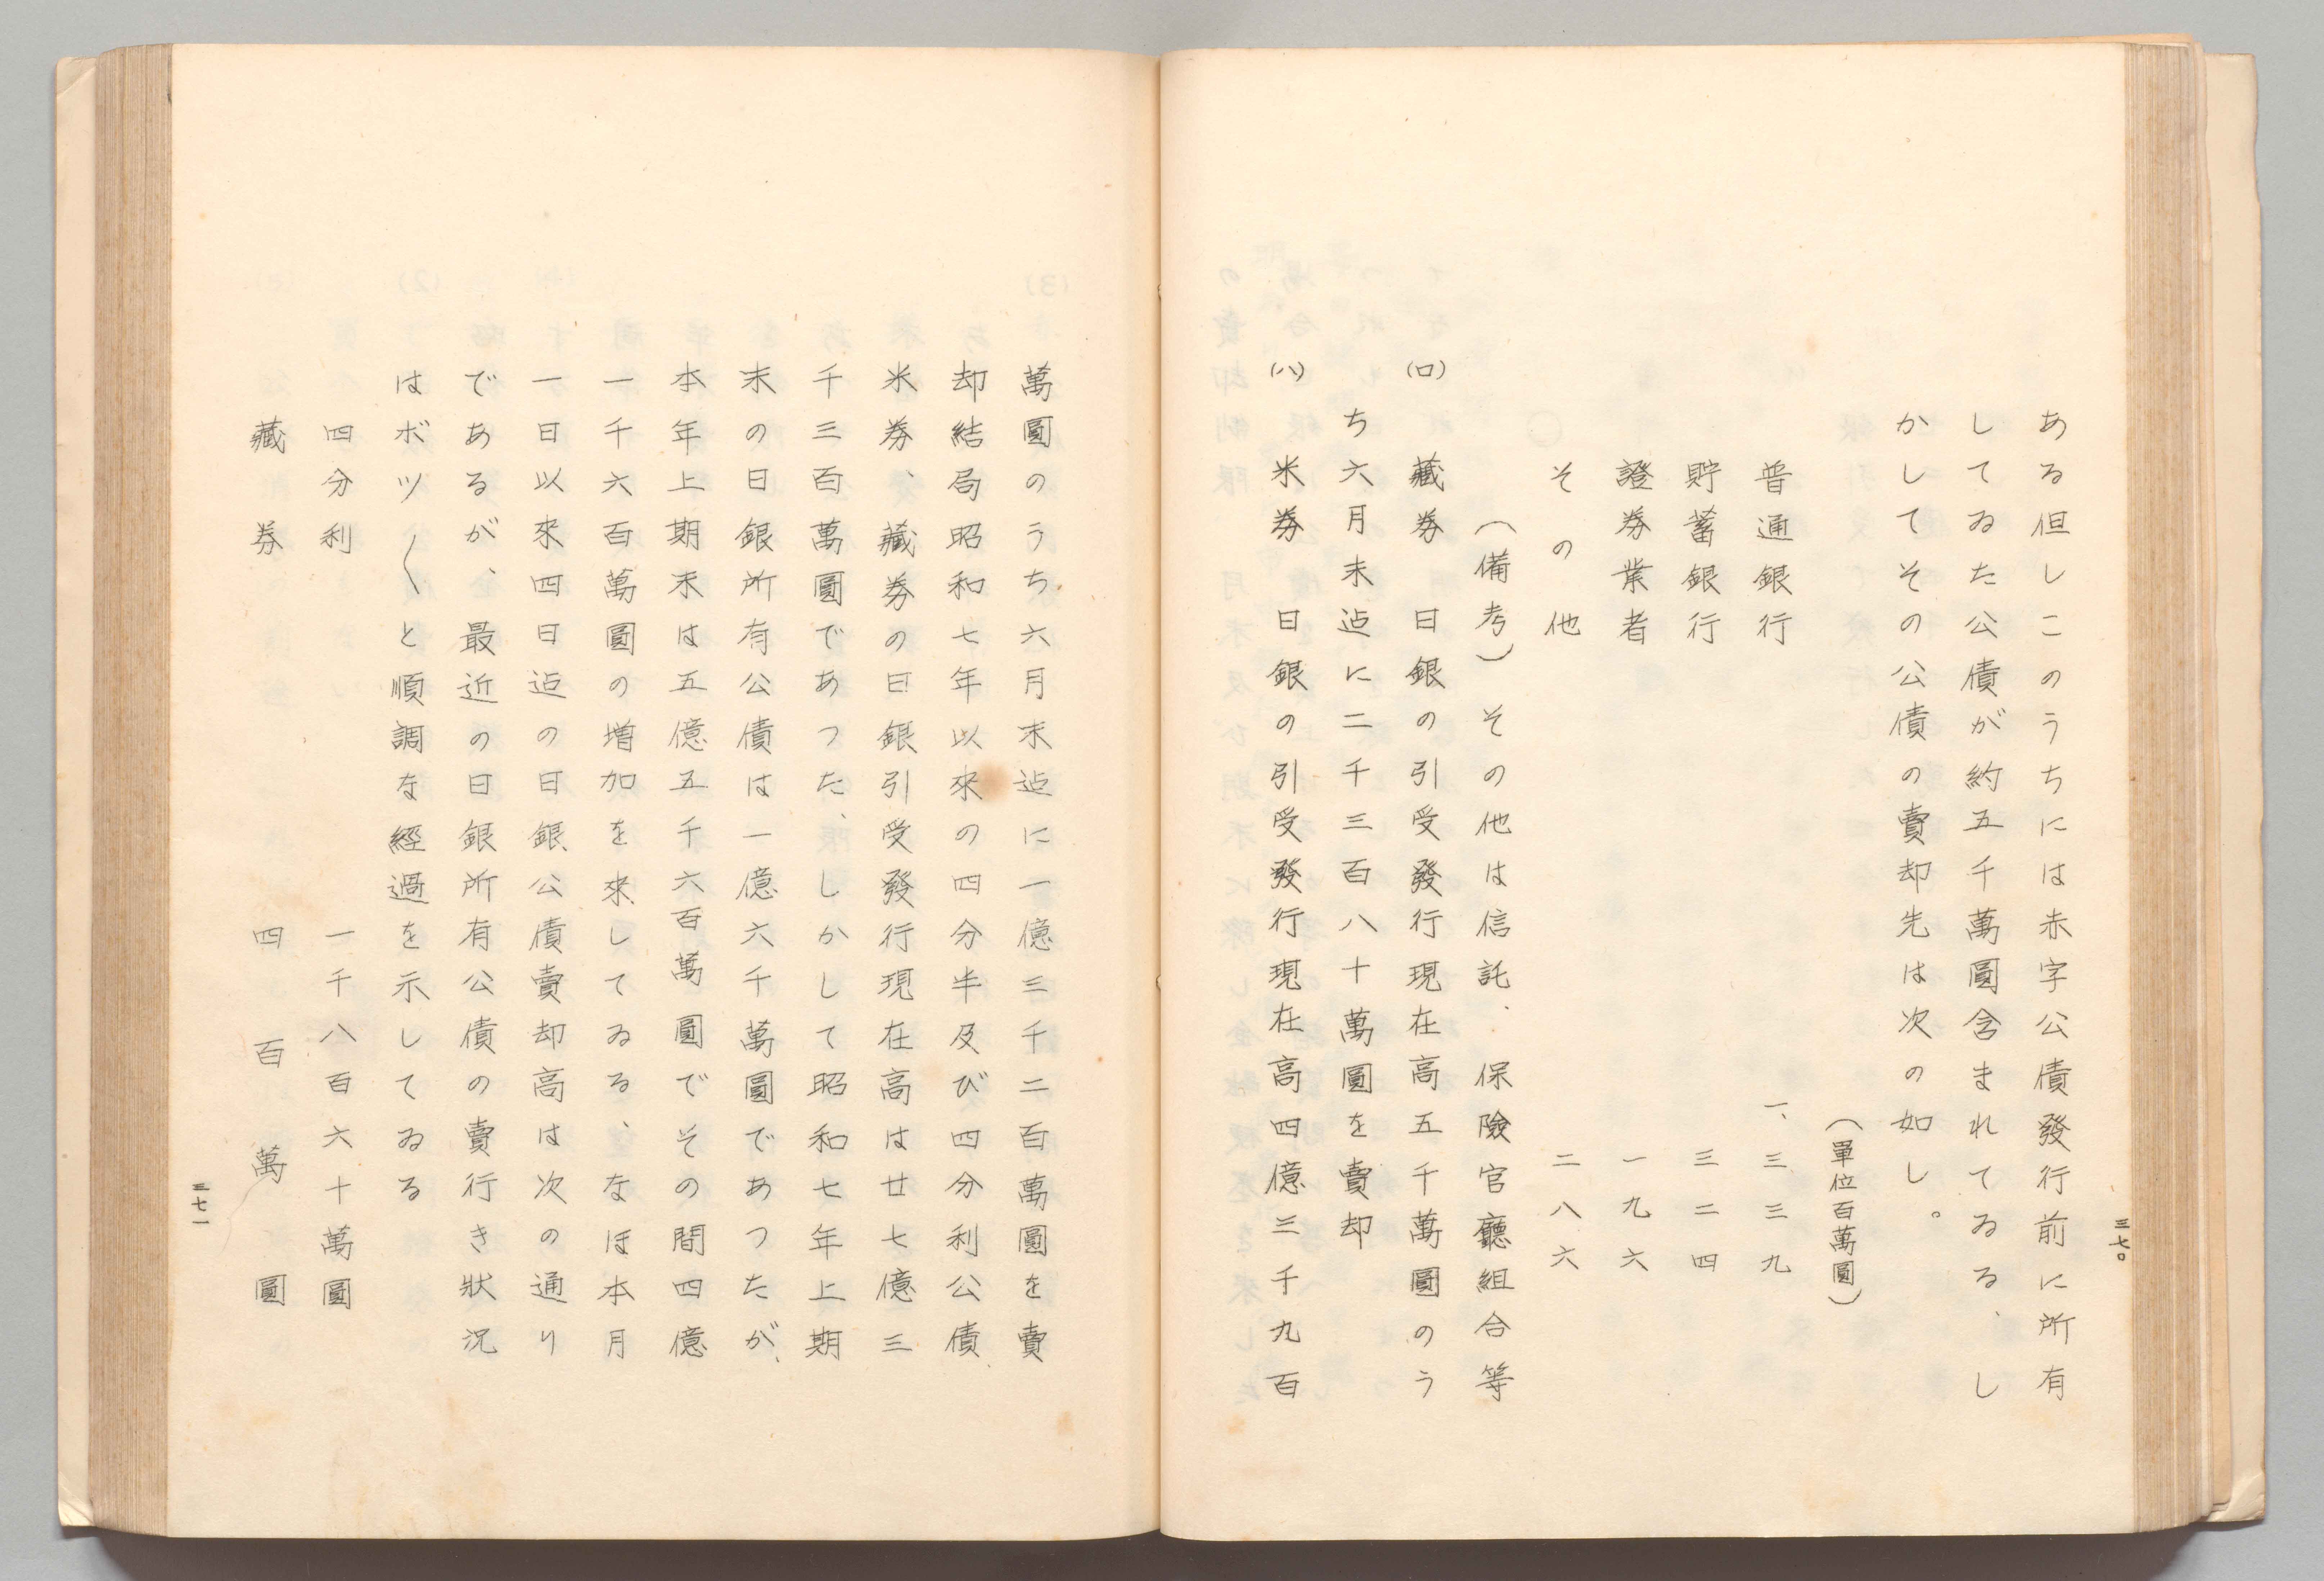 三七〇
ある但しこのうちには赤字公債發行前に所有
してゐた公債が約五千萬圓含まれてゐる、し
かしてその公債の賣却先は次の如し。
（單位百萬圓）
普通銀行　一、三三九
貯蓄銀行　三二四
證券業者　一九六
その他　二八六
（備考）その他は信託、保險官廳組合等
(ロ)　藏券　日銀の引受發行現在高五千萬圓のう
ち六月末迠に二千三百八十萬圓を賣却
(ハ)　米券　日銀の引受發行現在高四億三千九百
萬圓のうち六月末迠に一億三千二百萬圓を賣
却結局昭和七年以來の四分半及び四分利公債、
米券、藏券の日銀引受發行現在高は廿七億三
千三百萬圓であつた、しかして昭和七年上期
末の日銀所有公債は一億六千萬圓であつたが、
本年上期末は五億五千六百萬圓でその間四億
一千六百萬圓の増加を來してゐる、なほ本月
一日以來四日迠の日銀公債賣却高は次の通り
であるが、最近の日銀所有公債の賣行き狀況
はボツ〱と順調な經過を示してゐる
四分利　一千八百六十萬圓
藏券　四百萬圓
三七一